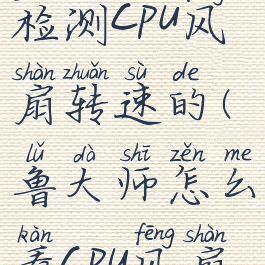 检测CPU风
shàn zhuǎn sù de
扇转速的(
lǔ dà shī zěn me
鲁大师怎么
kàn fēng shàn
看CPU风扇